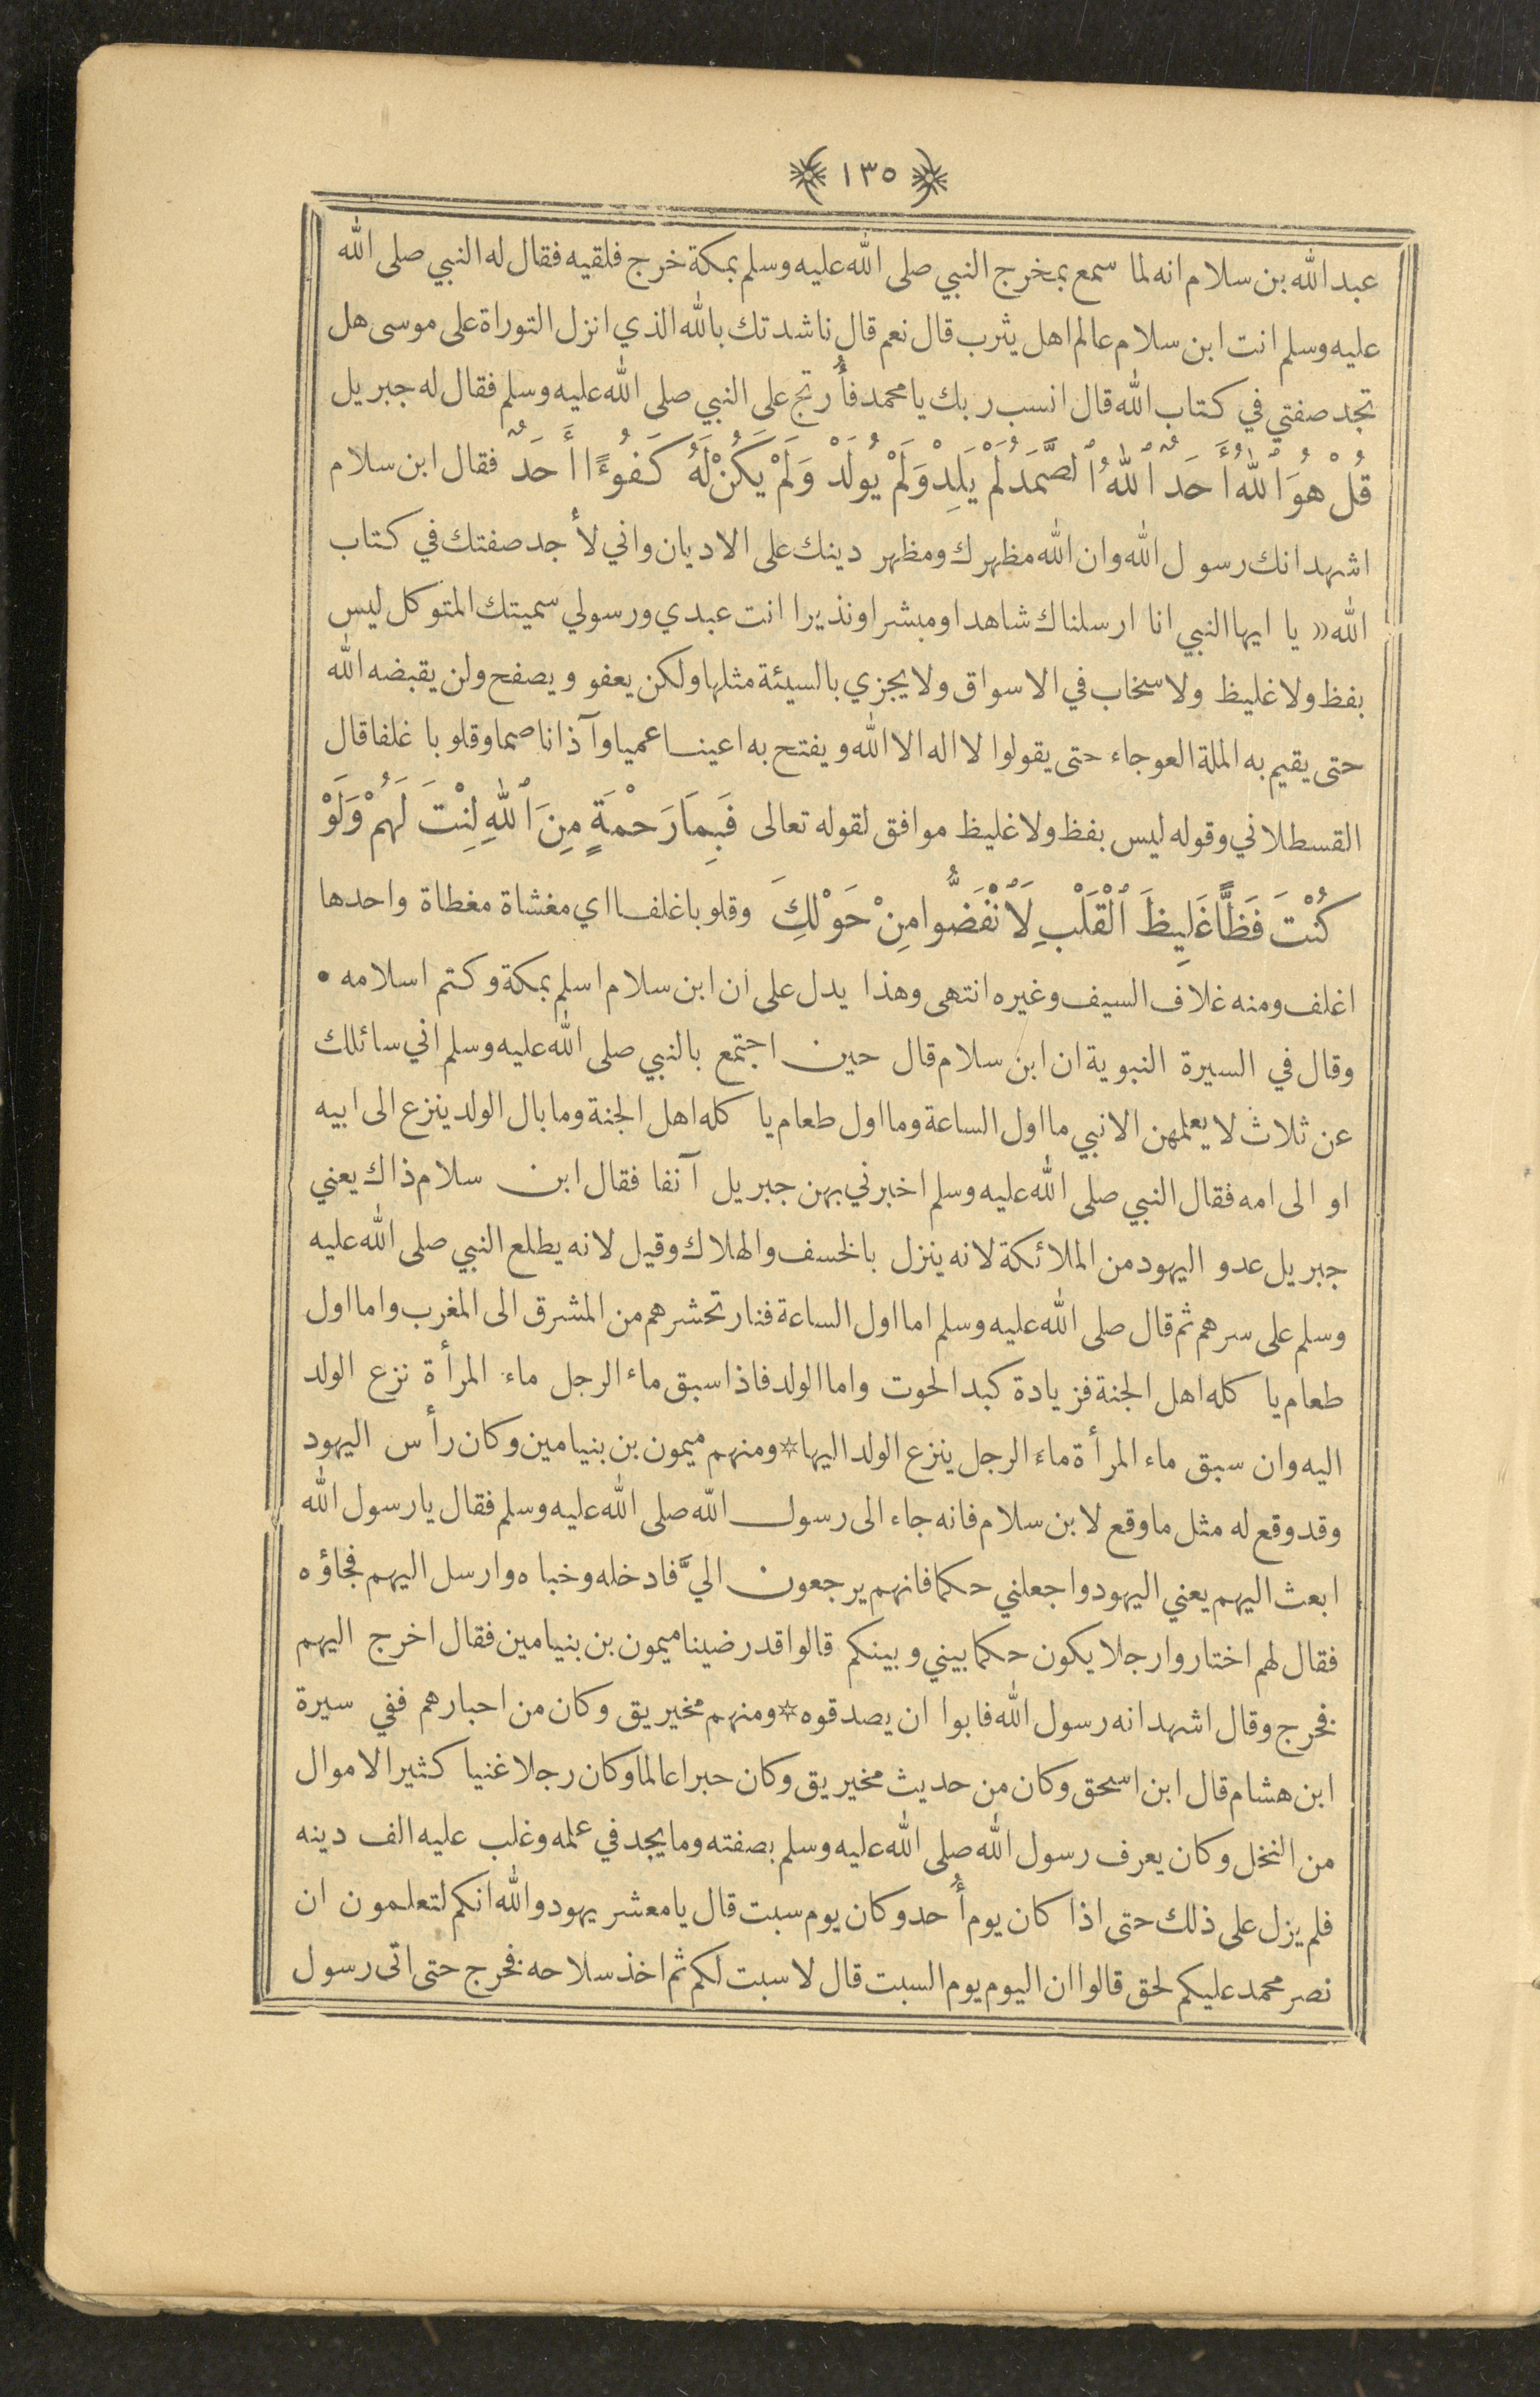 ١٣٥
عبد الله بن سلام انه لما سمع بمخرج النبي صلى الله عليه وسلم بمكة خرج فلقيه فقال له النبي صلى الله
عليه وسلم انت ابن سلام عالم اهل يثرب قال نعم قال ناشدتك بالله الذي انزل التوراة على موسى هل
تجد صفتي في كتاب الله قال انسب ربك يا محمد فأُرتج على النبي صلى الله عليه وسلم فقال له جبريل
قُلْ هُوَ ٱللهُ أَحَدٌ ٱللهُ ٱلصَّمَدُ لَمْ يَلِدْ وَلَمْ يُولَدْ وَلَمْ يَكُنْ لَهُ كُفُوءًا أَحَدٌ فقال ابن سلام
اشهد انك رسول الله وان الله مظهرك ومظهر دينك على الاديان واني لأجد صفتك في كتاب
الله «يا ايها النبي انا ارسلناك شاهدا ومبشرا ونذيرا انت عبدي ورسولي سميتك المتوكل ليس
بفظ ولا غليظ ولا سخاب في الاسواق ولا يجزي بالسيئة مثلها ولكن يعفو ويصفح ولن يقبضه الله
حتى يقيم به الملة العوجاء حتى يقولوا لا اله الا الله ويفتح به اعينا عميا وآذانا صما وقلوبا غلفا قال
القسطلاني وقوله ليس بفظ ولا غليظ موافق لقوله تعالى فَبِمَا رَحْمَةٍ مِنَ ٱللهِ لِنْتَ لَهُمْ وَلَوْ
كُنْتَ فَظًّا غَلِيظَ ٱلْقَلْبِ لَٱنْفَضُّوا مِنْ حَوْلِكَ وقلوبا غلفا اي مغشاة مغطاة واحدها
اغلف ومنه غلاف السيف وغيره انتهى وهذا يدل على ان ابن سلام اسلم بمكة وكتم اسلامه •
وقال في السيرة النبوية ان ابن سلام قال حين اجتمع بالنبي صلى الله عليه وسلم اني سائلك
عن ثلاث لا يعلمهن الا نبي ما اول الساعة وما اول طعام ياكله اهل الجنة وما بال الولد ينزع الى ابيه
او الى امه فقال النبي صلى الله عليه وسلم اخبرني بهن جبريل آنفا فقال ابن سلام ذاك يعني
جبريل عدو اليهود من الملائكة لانه ينزل بالخسف والهلاك وقيل لانه يطلع النبي صلى الله عليه
وسلم على سرهم ثم قال صلى الله عليه وسلم اما اول الساعة فنار تحشرهم من المشرق الى المغرب واما اول
طعام ياكله اهل الجنة فزيادة كبد الحوت واما الولد فاذا سبق ماء الرجل ماء المرأة نزع الولد
اليه وان سبق ماء المرأة ماء الرجل ينزع الولد اليها * ومنهم ميمون بن بنيامين وكان رأس اليهود
وقد وقع له مثل ما وقع لابن سلام فانه جاء الى رسول الله صلى الله عليه وسلم فقال يا رسول الله
ابعث اليهم يعني اليهود واجعلني حكما فانهم يرجعون اليَّ فادخله وخباه وارسل اليهم فجاؤه
فقال لهم اختاروا رجلا يكون حكما بيني وبينكم قالوا قد رضينا ميمون بن بنيامين فقال اخرج اليهم
فخرج وقال اشهد انه رسول الله فابوا ان يصدقوه * ومنهم مخيريق وكان من احبارهم ففي سيرة
ابن هشام قال ابن اسحق وكان من حديث مخيريق وكان حبرا عالما وكان رجلا غنيا كثير الاموال
من النخل وكان يعرف رسول الله صلى الله عليه وسلم بصفته وما يجد في علمه وغلب عليه الف دينه
فلم يزل على ذلك حتى اذا كان يوم أُحد وكان يوم سبت قال يا معشر يهود والله انكم لتعلمون ان
نصر محمد عليكم لحق قالوا ان اليوم يوم السبت قال لا سبت لكم ثم اخذ سلاحه فخرج حتى اتى رسول